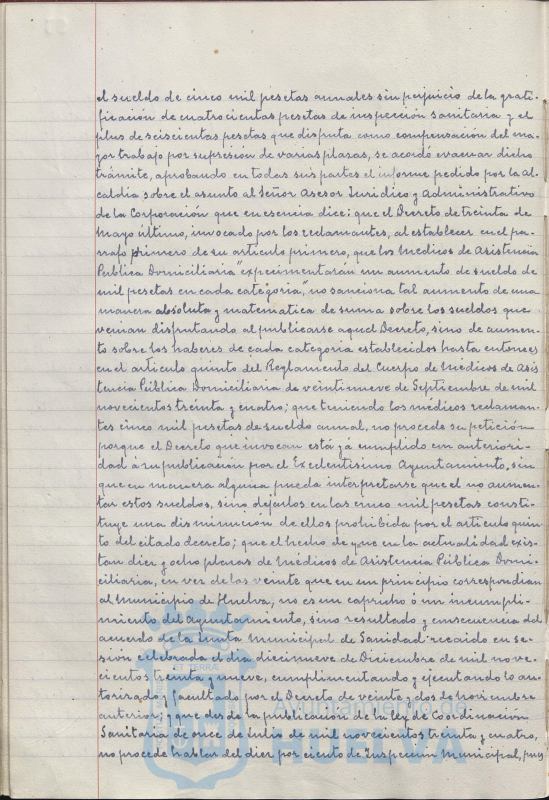 el sueldo de cinco mil pesetas anuales sin perjuicio de la grati-
ficación de cuatrocientas pesetas de inspección sanitaria y el
plus de seiscientas pesetas que disfruta como compensación del ma-
yor trabajo por supresión de varias plazas, se acordó evacuar dicho
trámite, aprobando en todas sus partes el informe pedido por la Al-
caldia sobre el asunto al Señor Asesor Juridico y Administrativo
de la Corporación que en esencia dice: que el Decreto de treinta de
Mayo último, invocado por los reclamantes, al establecer en el pa-
rrafo primero de su articulo primero, que los Medicos de Asistencia
Publica Domiciliaria "experimentarán un aumento de sueldo de
mil pesetas en cada categoria", no sanciona tal aumento de una
manera absoluta y matematica de suma sobre los sueldos que
venian disfrutando al publicarse aquel Decreto, sino de aumen-
to sobre los haberes de cada categoria establecidos hasta entonces
en el articulo quinto del Reglamento del Cuerpo de Médicos de Asis-
tencia Pública Domiciliaria de veintinueve de Septiembre de mil
novecientos treinta y cuatro; que teniendo los médicos reclaman-
tes cinco mil pesetas de sueldo anual, no procede su petición
porque el Decreto que invocan está yá cumplido con anteriori-
dad á su publicación por el Excelentisimo Ayuntamiento, sin
que en manera alguna pueda interpretarse que el no aumen-
tar estos sueldos, sino dejarlos en las cinco mil pesetas consti-
tuye una disminución de ellos prohibida por el articulo quin-
to del citado decreto; que el hecho de que en la actualidad exis-
tan diez y ocho plazas de médicos de Asistencia Pública Domi-
ciliaria, en vez de las veinte que en un principio correspondian
al Municipio de Huelva, no es un capricho ó un incumpli-
miento del Ayuntamiento, sino resultado y consecuencia del
acuerdo de la Junta Municipal de Sanidad recaido en se-
sión celebrada el dia diecinueve de Diciembre de mil nove-
cientos treinta y nueve, cumplimentando y ejecutando lo au-
torizado y facultado por el Decreto de veinte y dos de Noviembre
anterior; y que desde la publicación de la Ley de Coordinación
Sanitaria de once de Julio de mil novecientos treinta y cuatro,
no procede hablar del diez por ciento de Inspección Municipal, pues
Ayuntamiento de
HUELVA